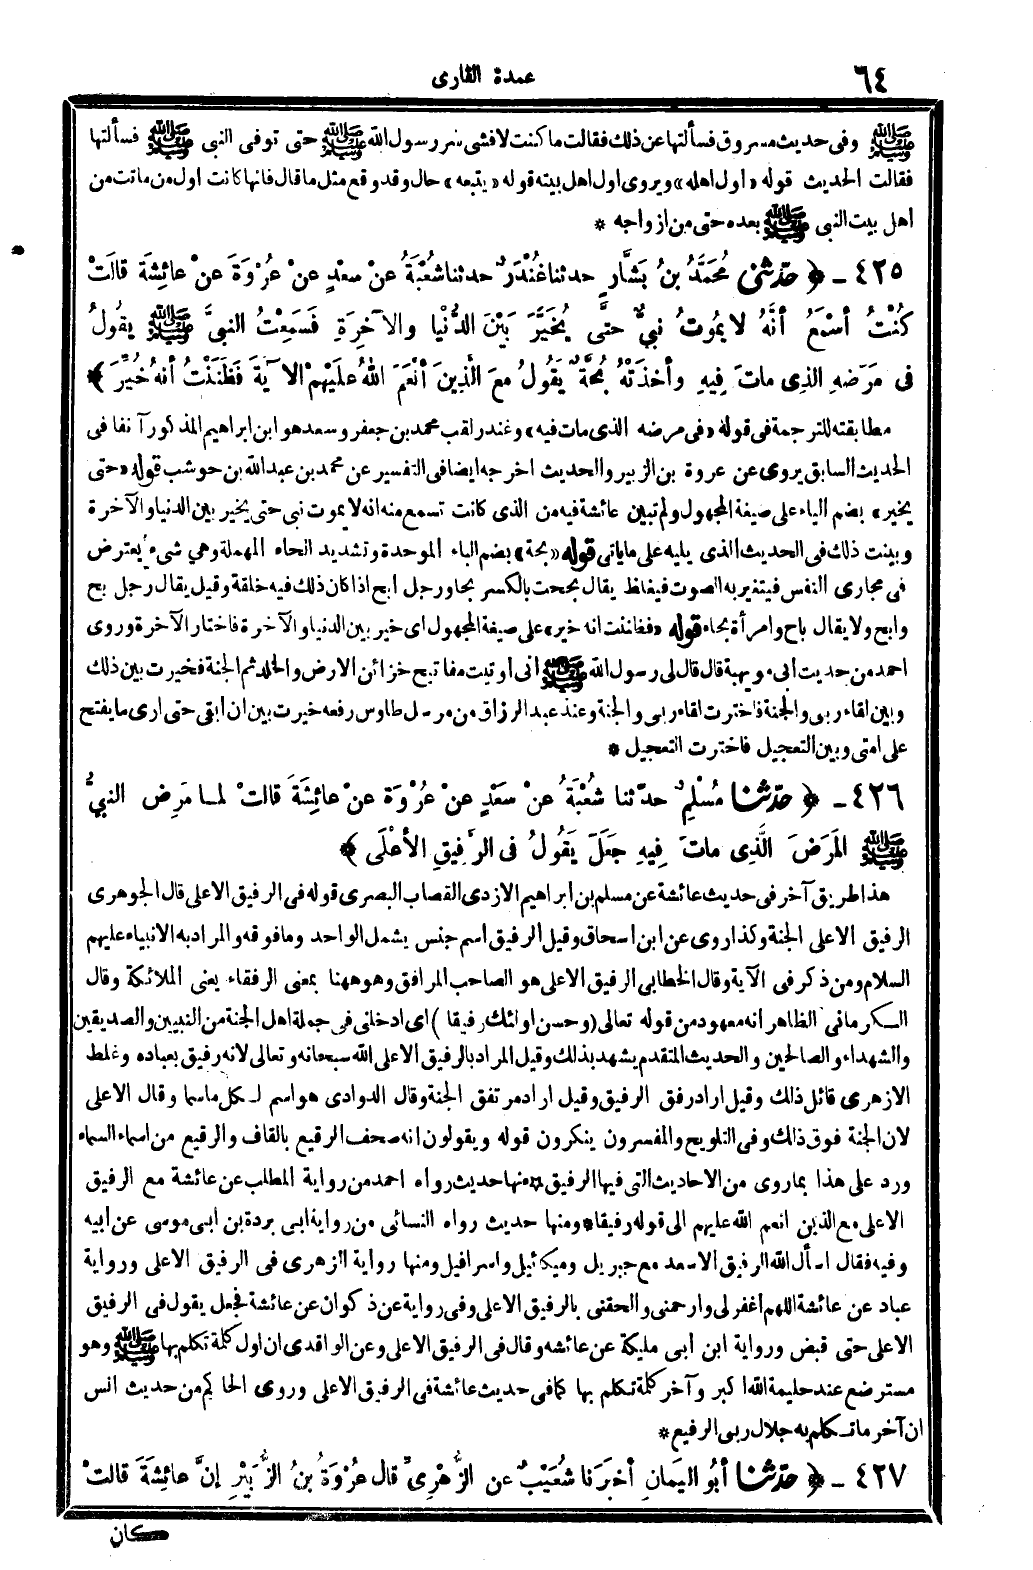 ٦٤ عمدة القارى
ﷺ وفى حديث مسروق فسألتها عن ذلك فقالت ما كنت لافشى سر رسول الله ﷺ حتى توفى النبى ﷺ فسألتها
فقالت الحديث قوله «اول اهله» ويروى اول اهل بيته قوله «يتبعه» حال وقد وقع مثل ما قال فانها كانت اول من ماتت من
اهل بيت النبى ﷺ بعده حتى من ازواجه *
٤٢٥ - ﴿ حدّثنى مُحَمَّدُ بنُ بَشَّارٍ حدثنا غُنْدَرٌ حدثنا شُعْبَةُ عنْ سعْدٍ عنْ عُرْوَةَ عنْ عائِشَةَ قالَتْ
كُنْتُ أسْمَعُ أنَّهُ لا يَمُوتُ نبيٌّ حتَّى يُخَيَّرَ بَيْنَ الدُّنْيا والآخِرَةِ فَسَمِعْتُ النبيَّ ﷺ يقُولُ
فى مَرَضهِ الذِى ماتَ فِيهِ وأخذَتْهُ بُحَّةٌ يَقُولُ معَ الَّذِينَ أنْعَمَ اللهُ علَيْهِمْ الآيَةَ فَظَنَنْتُ أنهُ خُيِّرَ ﴾
مطابقته للترجمة فى قوله «فى مرضه الذى مات فيه» وغندر لقب محمد بن جعفر وسعد هو ابن ابراهيم المذكور آنفا فى
الحديث السابق يروى عن عروة بن الزبير والحديث اخرجه ايضا فى التفسير عن محمد بن عبد الله بن حوشب قوله «حتى
يخير» بضم الياء على صيغة المجهول ولم تبين عائشة فيه من الذى كانت تسمع منه انه لا يموت نبى حتى يخير بين الدنيا والآخرة
وبينت ذلك فى الحديث الذى يليه على ما ياتى قوله «بحة» بضم الباء الموحدة وتشديد الحاء المهملة وهي شىء يعترض
فى مجارى النفس فيتغير به الصوت فيغلظ يقال بححت بالكسر بحا ورجل ابح اذا كان ذلك فيه خلقة وقيل يقال رجل بح
وابح ولا يقال باح وامرأة بحاء قوله «فظننت انه خير» على صيغة المجهول اى خير بين الدنيا والآخرة فاختار الآخرة وروى
احمد من حديث ابى مويهبة قال قال لى رسول الله ﷺ انى اوتيت مفاتيح خزائن الارض والخلد ثم الجنة فخيرت بين ذلك
وبين لقاء ربى والجنة فاخترت لقاء ربى والجنة وعند عبد الرزاق من مرسل طاوس رفعه خيرت بين ان ابقى حتى ارى ما يفتح
على امتى وبين التعجيل فاخترت التعجيل *
٤٢٦ - ﴿ حدّثنا مُسْلِمٌ حدّثنا شُعْبَةُ عنْ سَعْدٍ عنْ عُرْوَةَ عنْ عائِشَةَ قالَتْ لمـا مَرِضَ النبيُّ
ﷺ المَرَضَ الَّذِى ماتَ فِيهِ جَعَلَ يَقُولُ فى الرَّفِيقِ الأعْلَى ﴾
هذا طريق آخر فى حديث عائشة عن مسلم بن ابراهيم الازدى القصاب البصرى قوله فى الرفيق الاعلى قال الجوهرى
الرفيق الاعلى الجنة وكذا روى عن ابن اسحاق وقيل الرفيق اسم جنس يشمل الواحد وما فوقه والمراد به الانبياء عليهم
السلام ومن ذكر فى الآية وقال الخطابى الرفيق الاعلى هو الصاحب المرافق وهو ههنا بمعنى الرفقاء يعنى الملائكة وقال
الكرمانى الظاهر انه معهود من قوله تعالى (وحسن اولئك رفيقا) اى ادخلنى فى جملة اهل الجنة من النبيين والصديقين
والشهداء والصالحين والحديث المتقدم يشهد بذلك وقيل المراد بالرفيق الاعلى الله سبحانه وتعالى لانه رفيق بعباده وغلط
الازهرى قائل ذلك وقيل اراد رفق الرفيق وقيل اراد مرتفق الجنة وقال الداودى هو اسم لكل ما سما وقال الاعلى
لان الجنة فوق ذلك وفى التلويح والمفسرون ينكرون قوله ويقولون انه صحف الرقيع بالقاف والرقيع من اسماء السماء
ورد على هذا بما روى من الاحاديث التى فيها الرفيق * منها حديث رواه احمد من رواية المطلب عن عائشة مع الرفيق
الاعلى مع الذين انعم الله عليهم الى قوله رفيقا * ومنها حديث رواه النسائى من رواية ابى بردة بن ابى موسى عن ابيه
وفيه فقال اسأل الله الرفيق الاسعد مع جبريل وميكائيل واسرافيل ومنها رواية الزهرى فى الرفيق الاعلى ورواية
عباد عن عائشة اللهم اغفر لى وارحمنى والحقنى بالرفيق الاعلى وفى رواية عن ذكوان عن عائشة فجعل يقول فى الرفيق
الاعلى حتى قبض ورواية ابن أبى مليكة عن عائشه وقال فى الرفيق الاعلى وعن الواقدى ان اول كلمة تكلم بها ﷺ وهو
مسترضع عند حليمة الله اكبر وآخر كلمة تكلم بها كما فى حديث عائشة فى الرفيق الاعلى وروى الحاكم من حديث انس
ان آخر ما تكلم به جلال ربى الرفيع *
٤٢٧ - ﴿ حدّثنا أبُو اليَمانِ أخبَرَنا شُعَيْبٌ عن الزُّهْرِىِّ قال عُرْوَةُ بنُ الزُّبَيْرِ إنَّ عائِشَةَ قالتْ
كان